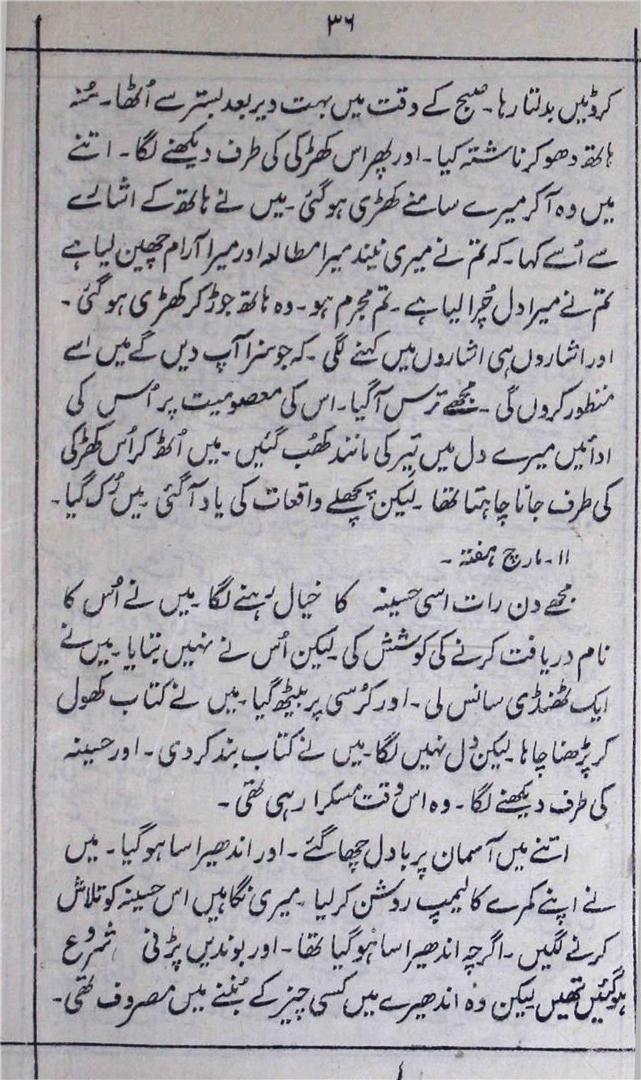 ۳۶
کروٹیں بدلتا رہا۔ صبح کے وقت میں بہت دیر بعد بستر سے اُٹھا۔ مُنہ
ہاتھ دھو کر ناشتہ کیا۔ اور پھر اس کھڑکی کی طرف دیکھنے لگا۔ اتنے
میں وہ آکر میرے سامنے کھڑی ہوگئی۔ میں نے ہاتھ کے اشارے
سے اُسے کہا۔ کہ تم نے میری نیند میرا مطالعہ اور میرا آرام چھین لیا ہے
تم نے میرا دل چُرا لیا ہے۔ تم مجرم ہو۔ وہ ہاتھ جوڑ کر کھڑی ہوگئی۔
اور اشاروں ہی اشاروں میں کہنے لگی۔ کہ جو سزا آپ دیں گے میں اسے
منظور کروں گی۔ مجھے ترس آگیا۔ اس کی معصومیت پر اُس کی
ادائیں میرے دل میں تیر کی مانند کھُب گئیں۔ میں اُٹھ کر اُس کھڑکی
کی طرف جانا چاہتا تھا۔ لیکن پچھلے واقعات کی یاد آگئی۔ میں رُک گیا۔
۱۱۔ مارچ ہفتہ۔
مجھے دن رات اسی حسینہ کا خیال رہنے لگا۔ میں نے اُس کا
نام دریافت کرنے کی کوشش کی لیکن اُس نے نہیں بتایا۔ میں نے
ایک ٹھنڈی سانس لی۔ اور کُرسی پر بیٹھ گیا۔ میں نے کتاب کھول
کر پڑھنا چاہا لیکن دل نہیں لگا۔ میں نے کتاب بند کردی۔ اور حسینہ
کی طرف دیکھنے لگا۔ وہ اس وقت مسکرا رہی تھی۔
اتنے میں آسمان پر بادل چھا گئے۔ اور اندھیرا سا ہوگیا۔ میں
نے اپنے کمرے کا لیمپ روشن کرلیا۔ میری نگاہیں اس حسینہ کو تلاش
کرنے لگیں۔ اگرچہ اندھیرا سا ہوگیا تھا۔ اور بوندیں پڑنی شروع
ہوگئیں تھیں لیکن وہ اندھیرے میں کسی چیز کے بُننے میں مصروف تھی۔